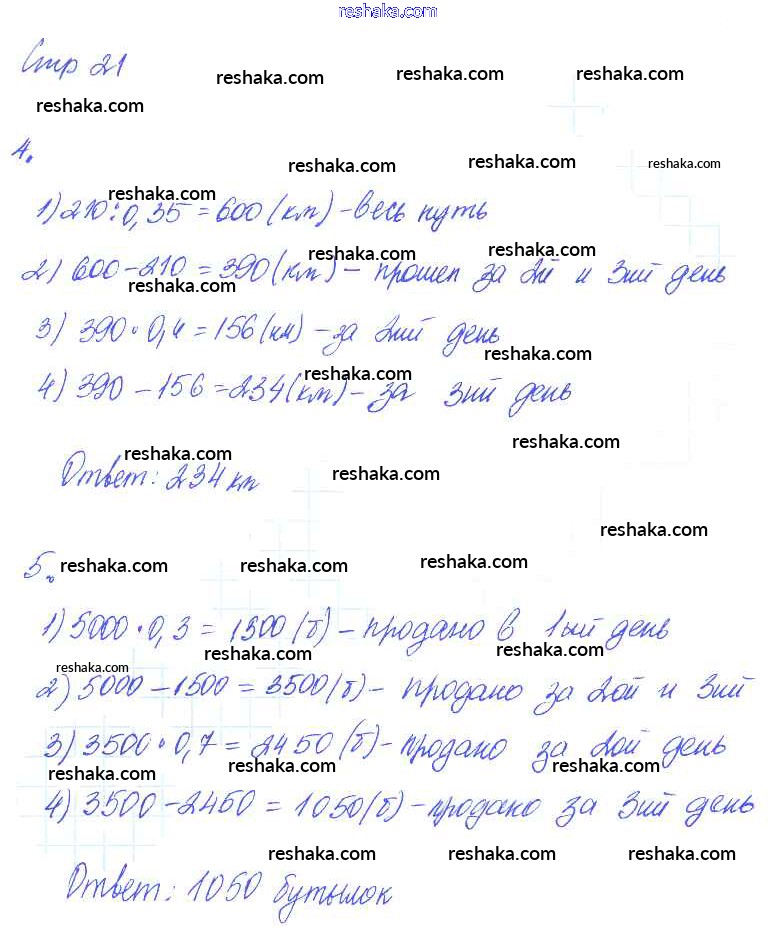 reshaka.com
Стр 21
reshaka.com reshaka.com reshaka.com
reshaka.com
4.
reshaka.com reshaka.com reshaka.com
reshaka.com
1) 210 : 0,35 = 600 (км) - весь путь
reshaka.com reshaka.com
2) 600 - 210 = 390 (км) - прошел за 2й и 3ий день
reshaka.com
3) 390 · 0,4 = 156 (км) - за 2ий день
reshaka.com
reshaka.com
4) 390 - 156 = 234 (км) - за 3ий день
reshaka.com
reshaka.com reshaka.com
Ответ: 234 км
reshaka.com
5.
reshaka.com reshaka.com reshaka.com
1) 5000 · 0,3 = 1500 (б) - продано в 1ый день
reshaka.com reshaka.com reshaka.com
2) 5000 - 1500 = 3500 (б) - продано за 2ой и 3ий
3) 3500 · 0,7 = 2450 (б) - продано за 2ой день
reshaka.com reshaka.com reshaka.com
4) 3500 - 2450 = 1050 (б) - продано за 3ий день
reshaka.com reshaka.com reshaka.com
Ответ: 1050 бутылок